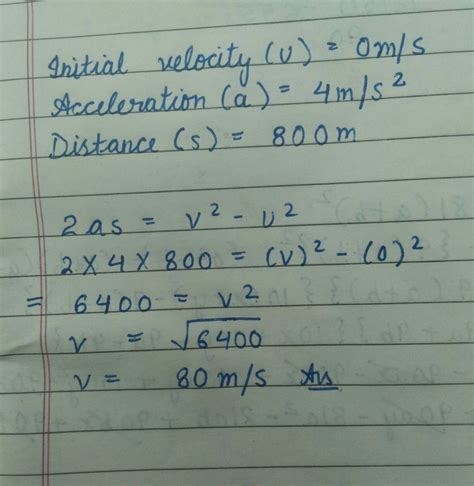 Initial velocity (u) = 0m/s
Acceleration (a) = 4m/s²
Distance (s) = 800m
2as = v² - u²
2 × 4 × 800 = (v)² - (0)²
= 6400 = v²
v = √6400
v = 80 m/s Ans